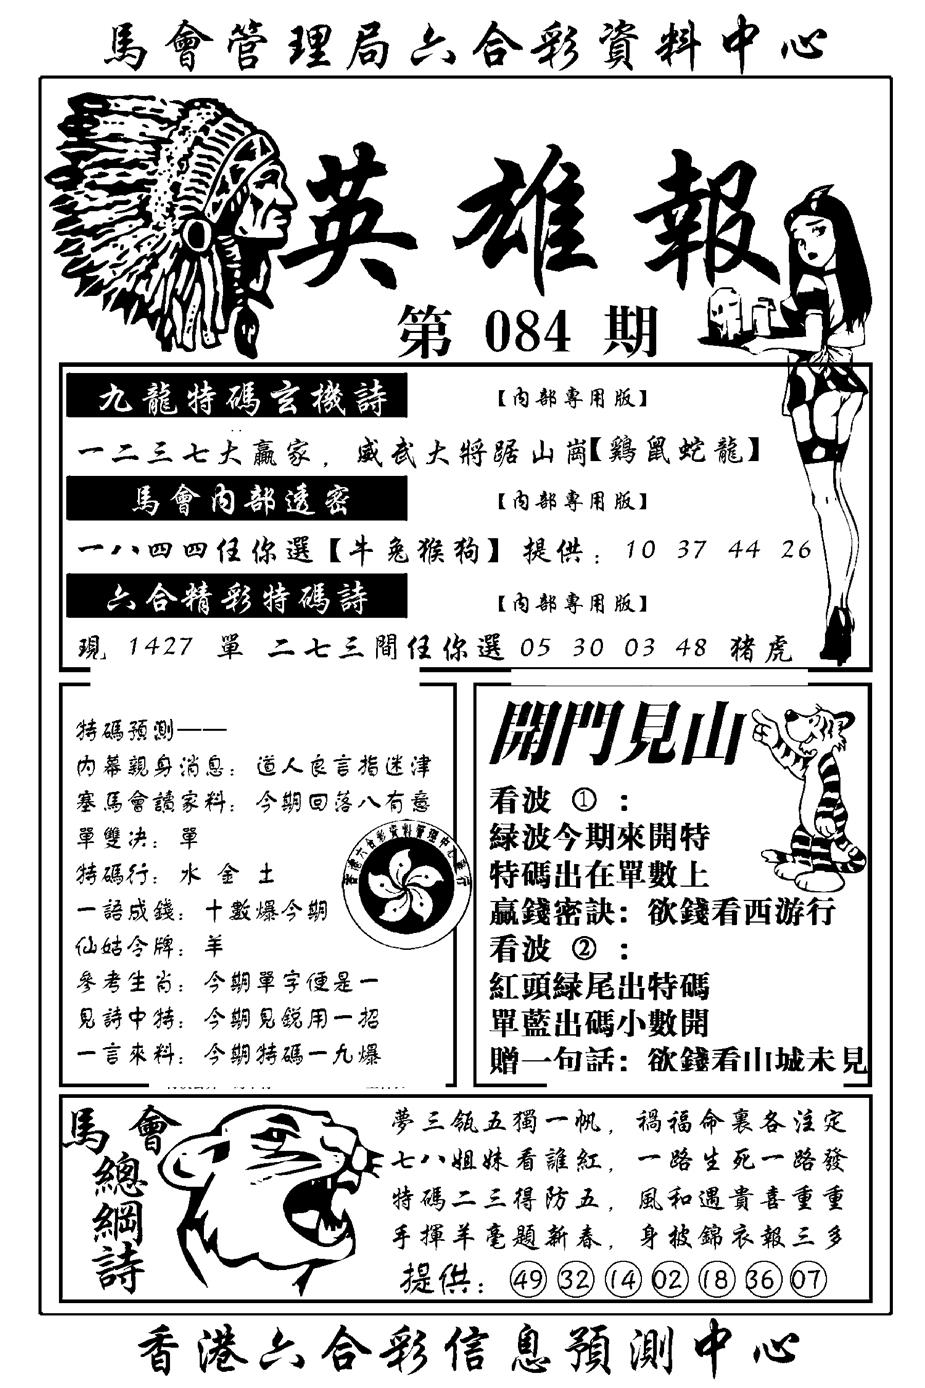 馬會管理局六合彩資料中心
英雄報
第 084 期
九龍特碼玄機詩 【內部專用版】
一二三七大贏家，威武大將踞山崗【鷄鼠蛇龍】
馬會內部透密 【內部專用版】
一八四四任你選【牛兔猴狗】 提供：10 37 44 26
六合精彩特碼詩 【內部專用版】
現 1427 單 二七三間任你選 05 30 03 48 猪虎
特碼預測——
內幕親身消息：道人良言指迷津
塞馬會讀家料：今期回落八有意
單雙决：單
特碼行：水 金 土
一語成錢：十數爆今期
仙姑令牌：羊
參考生肖：今期單字便是一
見詩中特：今期見鋭用一招
一言來料：今期特碼一九爆
香港六合彩資料管理中心發行
開門見山
看波 ①：
緑波今期來開特
特碼出在單數上
贏錢密訣：欲錢看西游行
看波 ②：
紅頭緑尾出特碼
單藍出碼小數開
贈一句話：欲錢看山城未見
馬會
總綱詩
夢三瓴五獨一帆，禍福命裏各注定
七八姐妹看誰紅，一路生死一路發
特碼二三得防五，風和遇貴喜重重
手揮羊毫題新春，身被錦衣報三多
提供：49 32 14 02 18 36 07
香港六合彩信息預測中心